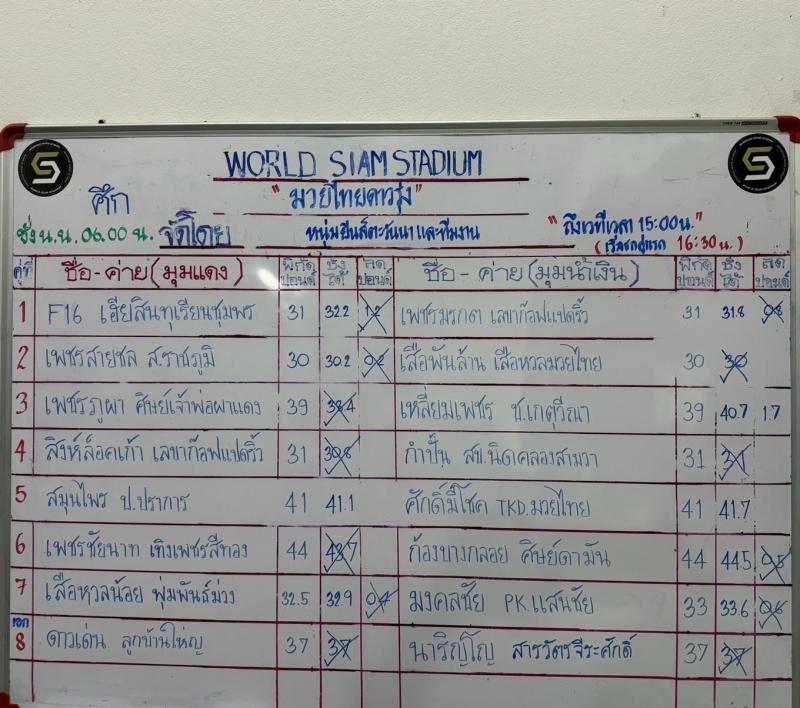 WORLD SIAM STADIUM
ศึก "มวยไทยดาวรุ่ง"
ชั่ง น.น. 06.00 น. จัดโดย หนุ่มยีนส์ตะวันนา และทีมงาน "ถึงเวทีเวลา 15:00น."
(เริ่มชกคู่แรก 16:30 น.)
คู่ที่ ชื่อ - ค่าย (มุมแดง) พิกัดปอนด์ ชั่งได้ ลดปอนด์ ชื่อ - ค่าย (มุมน้ำเงิน) พิกัดปอนด์ ชั่งได้ ลดปอนด์
1 F16 เฮียสินทุเรียนชุมพร 31 32.2 1.2 เพชรมรกต เลขาก๊อฟแปดริ้ว 31 31.8 0.8
2 เพชรสายชล ส.ราชภูมิ 30 30.2 0.2 เสือพันล้าน เสือหวลมวยไทย 30 30
3 เพชรภูผา ศิษย์เจ้าพ่อผาแดง 39 38.4 เหลี่ยมเพชร ช.เกตุวีณา 39 40.7 1.7
4 สิงห์ล็อคเก้า เลขาก๊อฟแปดริ้ว 31 30.8 กำปั้น สข.นิดคลองสามวา 31 31
5 สมุนไพร ป.ปราการ 41 41.1 ศักดิ์มีโชค TKD.มวยไทย 41 41.7
6 เพชรชัยนาท เทิงเพชรสีทอง 44 43.7 ก้องบางกลอย ศิษย์ดามัน 44 44.5 0.5
7 เสือหวลน้อย พุ่มพันธ์ม่วง 32.5 32.9 0.4 มงคลชัย P.K.แสนชัย 33 33.6 0.6
8 ดาวเด่น ลูกบ้านใหญ่ 37 37 นาริญโญ สารวัตรจีระศักดิ์ 37 37